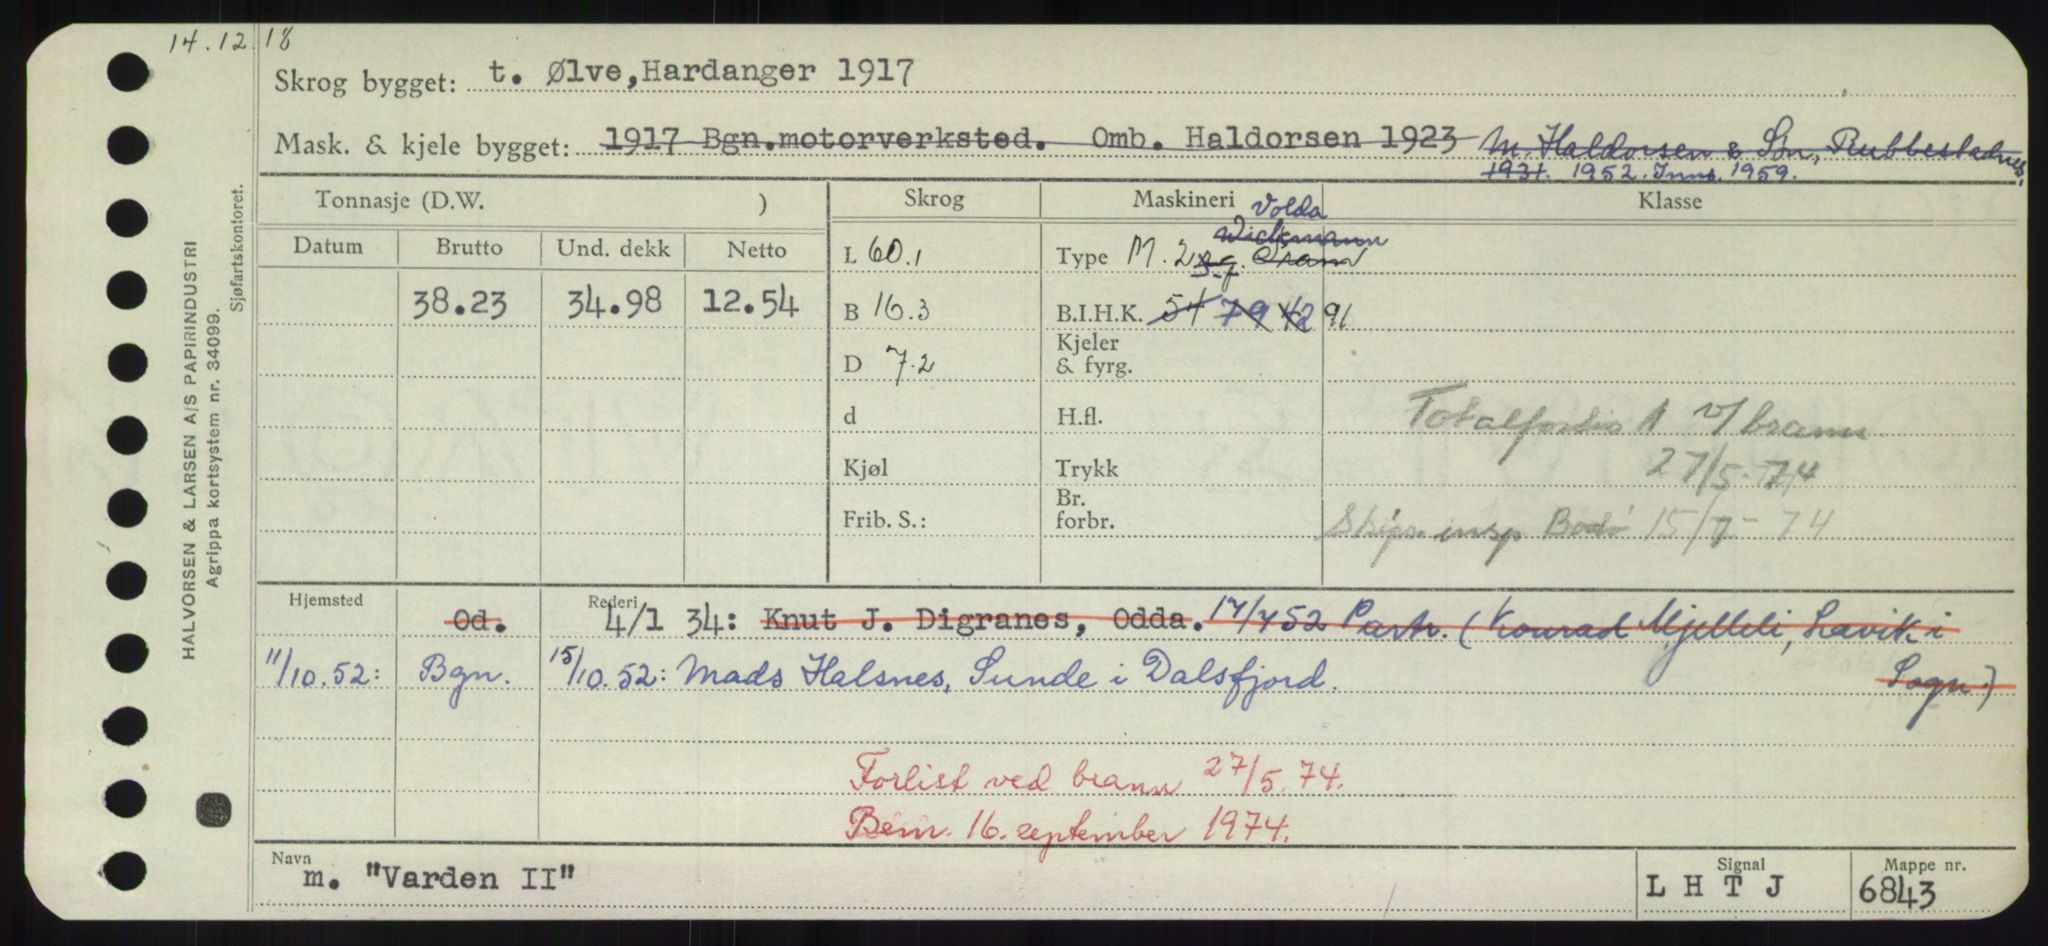 14.12.18
Skrog bygget: t. Ølve, Hardanger 1917
Mask. & kjele bygget: 1917 Bgn.motorverksted. Omb. Haldorsen 1923 M. Haldorsen & Søn, Rubbestadnes,
1931. 1952. Inns. 1959.
Tonnasje (D.W. ) Skrog Maskineri Klasse
Volda
Wickmann
Datum Brutto Und. dekk Netto L 60.1 Type M. 2 sg.
38.23 34.98 12.54 B 16.3 B.I.H.K. 54 79 42 91
D 7.2 Kjeler
& fyrg.
d H.fl. Totalforlis v/brann
27/5-74
Kjøl Trykk
Frib. S.: Br.
forbr. Skips. insp Bodø 15/7-74
Hjemsted Rederi
Od. 4/1 34: Knut J. Digranes, Odda. 17/7 52 Partr. (Konrad Mjelleli, Lavik i
Sogn.)
11/10.52: Bgn. 15/10.52: Mads Halsnes, Sunde i Dalsfjord.
Forlist ved brann 27/5.74.
Bem. 16. september 1974.
Navn Signal Mappe nr.
m. "Varden II" L H T J 6843
HALVORSEN & LARSEN A/S PAPIRINDUSTRI
Agrippa kortsystem nr. 34099.
Sjøfartskontoret.